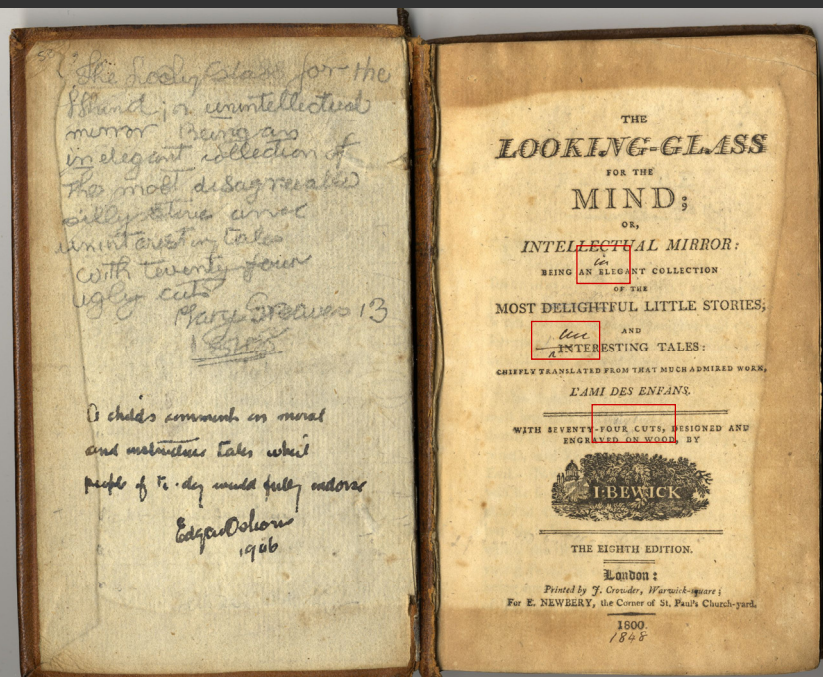 The Looking Glass for the
Mind; or unintellectual
mirror Being an
inelegant collection of
the most disagreeable
silly stories and
uninteresting tales
with seventy four
ugly cuts
Mary Greaves 13
A child's comments on moral
and instructive tales which
people of to-day would fully endorse
Edgar Osborne
1946
THE
LOOKING-GLASS
FOR THE
MIND;
OR,
INTELLECTUAL MIRROR:
in
BEING AN ELEGANT COLLECTION
OF THE
MOST DELIGHTFUL LITTLE STORIES;
AND
un
INTERESTING TALES:
CHIEFLY TRANSLATED FROM THAT MUCH ADMIRED WORK,
L'AMI DES ENFANS.
WITH SEVENTY-FOUR CUTS, DESIGNED AND
ENGRAVED ON WOOD, BY
I·BEWICK
THE EIGHTH EDITION.
London:
Printed by J. Crowder, Warwick-square;
For E. NEWBERY, the Corner of St. Paul's Church-yard.
1800.
1848